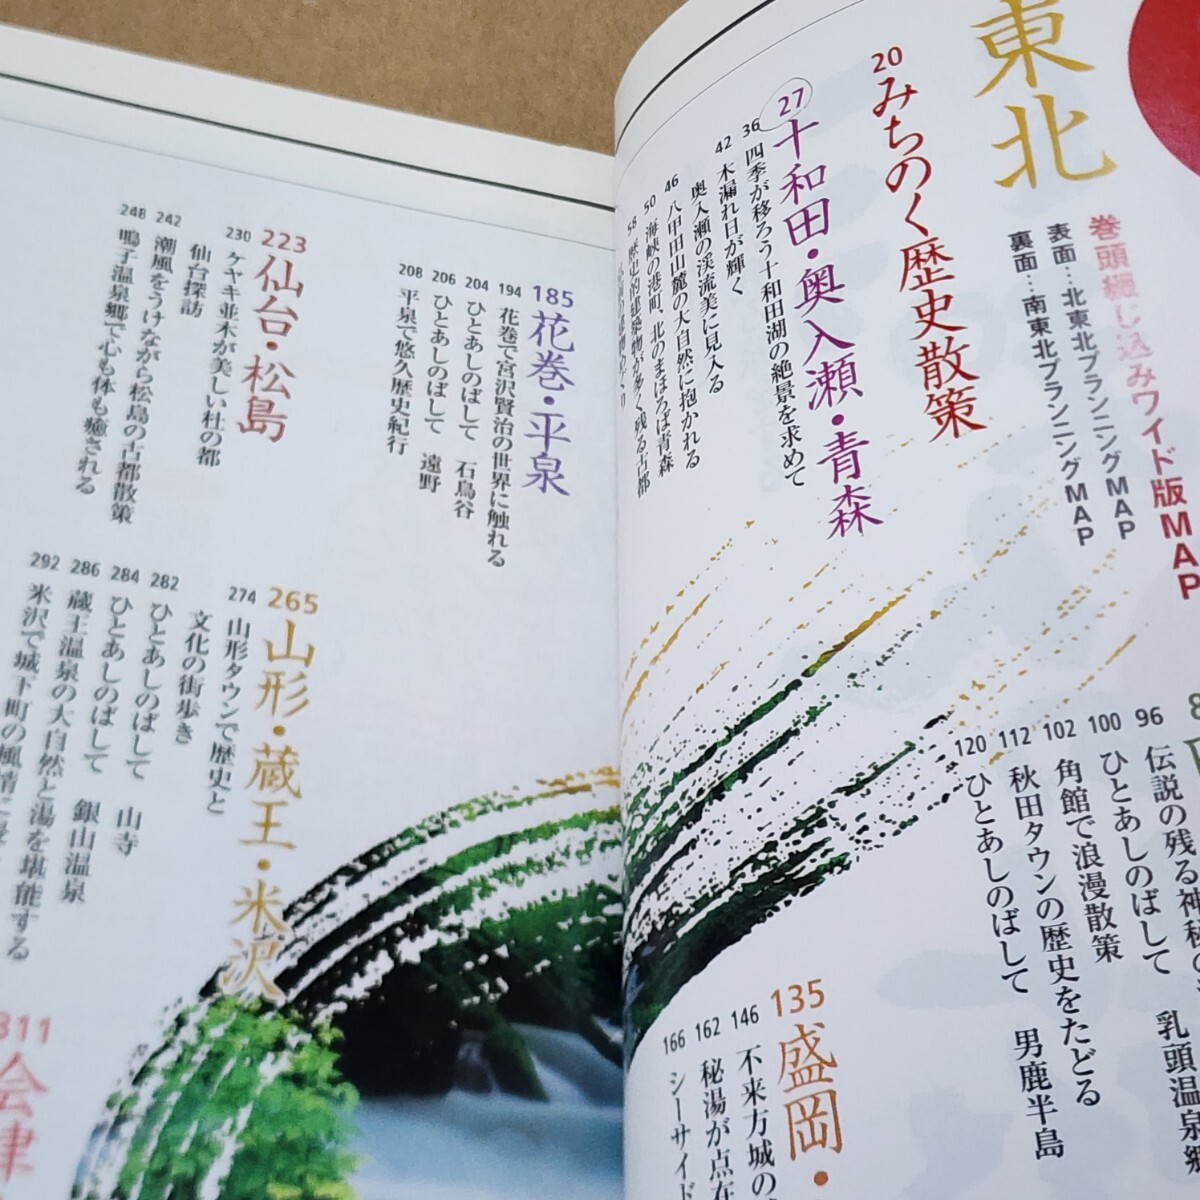 東北
巻頭綴じ込みワイド版MAP
表面…北東北プランニングMAP
裏面…南東北プランニングMAP
20 みちのく歴史散策
27 十和田・奥入瀬・青森
36 四季が移ろう十和田湖の絶景を求めて
42 木漏れ日が輝く
奥入瀬の渓流美に見入る
46 八甲田山麓の大自然に抱かれる
50 海峡の港町、北のまほろば青森
58 歴史的建築物が多く残る古都
96 伝説の残る神秘の
100 ひとあしのばして 乳頭温泉郷
102 角館で浪漫散策
112 秋田タウンの歴史をたどる
120 ひとあしのばして 男鹿半島
135 盛岡・
146 不来方城の
162 秘湯が点在
166 シーサイド
185 花巻・平泉
194 花巻で宮沢賢治の世界に触れる
204 ひとあしのばして 石鳥谷
206 ひとあしのばして 遠野
208 平泉で悠久歴史紀行
223 仙台・松島
230 ケヤキ並木が美しい杜の都
仙台探訪
242 潮風をうけながら松島の古都散策
248 鳴子温泉郷で心も体も癒される
265 山形・蔵王・米沢
274 山形タウンで歴史と
文化の街歩き
282 ひとあしのばして 山寺
284 ひとあしのばして 銀山温泉
286 蔵王温泉の大自然と湯を堪能する
292 米沢で城下町の風情に
311 会津